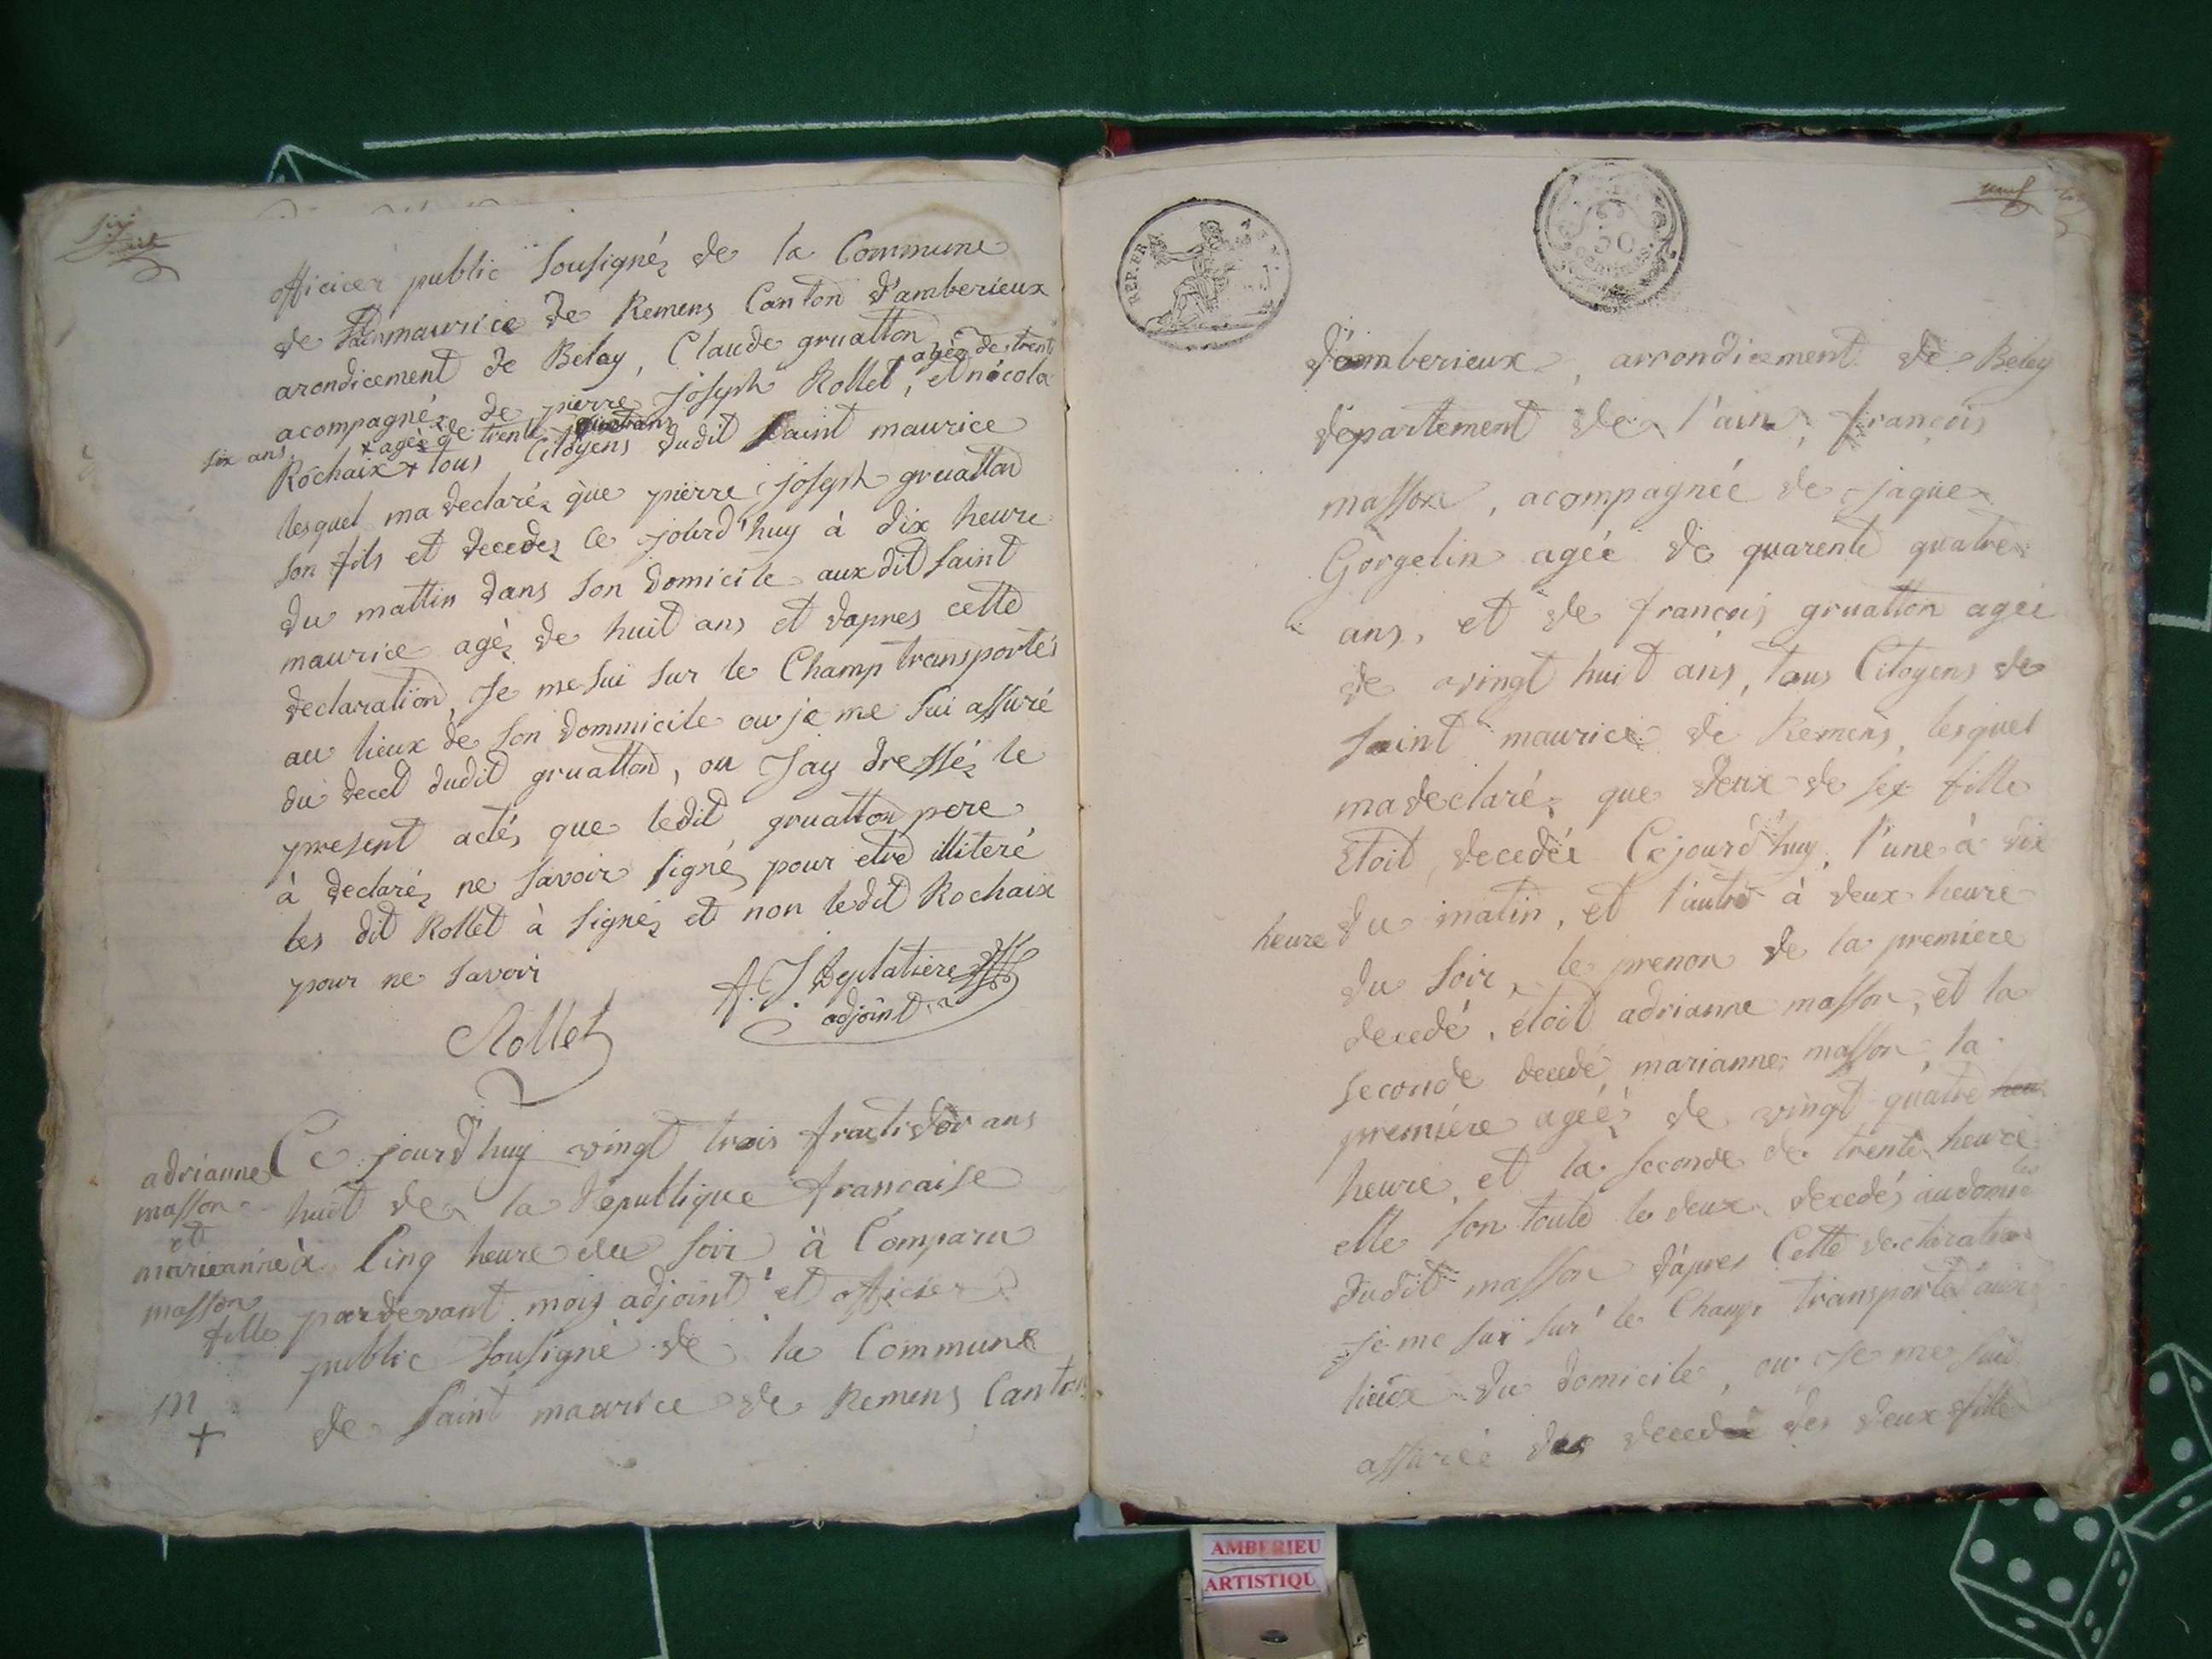 officier public Sousigné de la Commune
de Saint maurice de Remens Canton d'amberieux
arondicement de Belay, Claude gruatton
agée de trente
acompagné de pierre joseph Rollet, et nicola
six ans
+ agée de trente
Rochaix + tous Citoyens dudit Saint maurice
lesquel ma declaré que pierre joseph gruatton
son fils et decedez ce jourd'huy à dix heure
du mattin dans son domicile aux dit saint
maurice agé de huit ans et d'apres cette
declaration, Je me sui sur le Champ transportés
au lieux de son dommicile ou je me sui assuré
du deced dudit gruatton, ou Jay dressé le
present actés que ledit gruatton pere
à declaré ne savoir signé pour etre illiteré
les dit Rollet à signé et non ledit Rochaix
pour ne savoir
A. J. Deplatiere
adjoint
Rollet
adrianne
masson
et
marianne
masson
fille
m
+
Ce jourd'huy vingt trois fructidor ans
huit de la Republique francaise
à Cinq heure du soir à Comparu
pardevant moy adjoint et officier
public sousigné de la Commune
de Saint maurice de Remens Canton
REP. FRA.
50
centimes
neuf
d'amberieux, arrondicement de Beley
departement de l'ain, françois
masson, acompagnée de jaque
Gorgelin agée de quarente quatre
ans, et de francois gruatton agée
de vingt huit ans, tous Citoyens de
saint maurice de Remens, lesquel
ma declaré que deux de ses fille
etoit decedée Cejourd'huy, l'une à dix
heure du matin, et l'autre à deux heure
du soir, le prenon de la premiere
decedé, etoit adrianne masson, et la
seconde decedé marianne masson, la
premiére agée de vingt quatre heu
heure, et la seconde de trente heure
elle son toute le deux decedés au domicile
dudit masson d'apres Cette declaration
je me sui sur le Champ transporté aux
lieux du domicile, ou je me suis
assurée des decedée des deux fille
AMBERIEU
ARTISTIQU